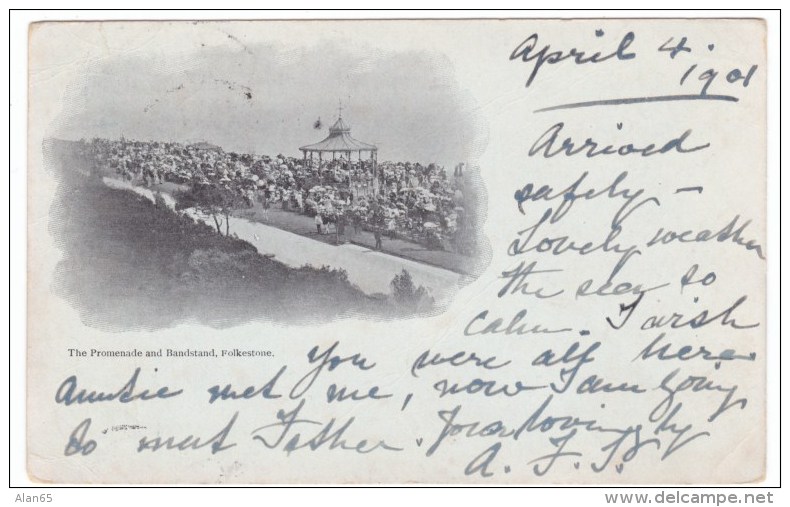 April 4.
1901
Arrived
safely —
Lovely weather
the sea so
calm. I wish
The Promenade and Bandstand, Folkestone.
You were all here
Auntie met me, now I am going
to meet Father. Yours lovingly
A. F. S.
Alan65
www.delcampe.net